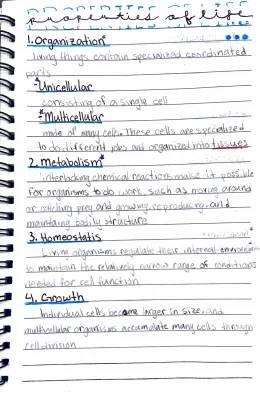 properties of life
1. Organization*
living things contain specialized coordinated
parts
-Unicellular
consisting of a single cell
-Multicellular
made of many cells. These cells are specialized
to do different jobs and organized into tissues
2. Metabolism*
interlocking chemical reactions make it possible
for organisms to do work, such as moving around
or catching prey and growing, reproducing, and
maintaing bodily structure
3. Homeostatis
Living organisms regulate their internal environment
to maintain the relatively narrow range of conditions
needed for cell function
4. Growth
Individual cells become larger in size, and
multicellular organisms accumulate many cells through
cell division